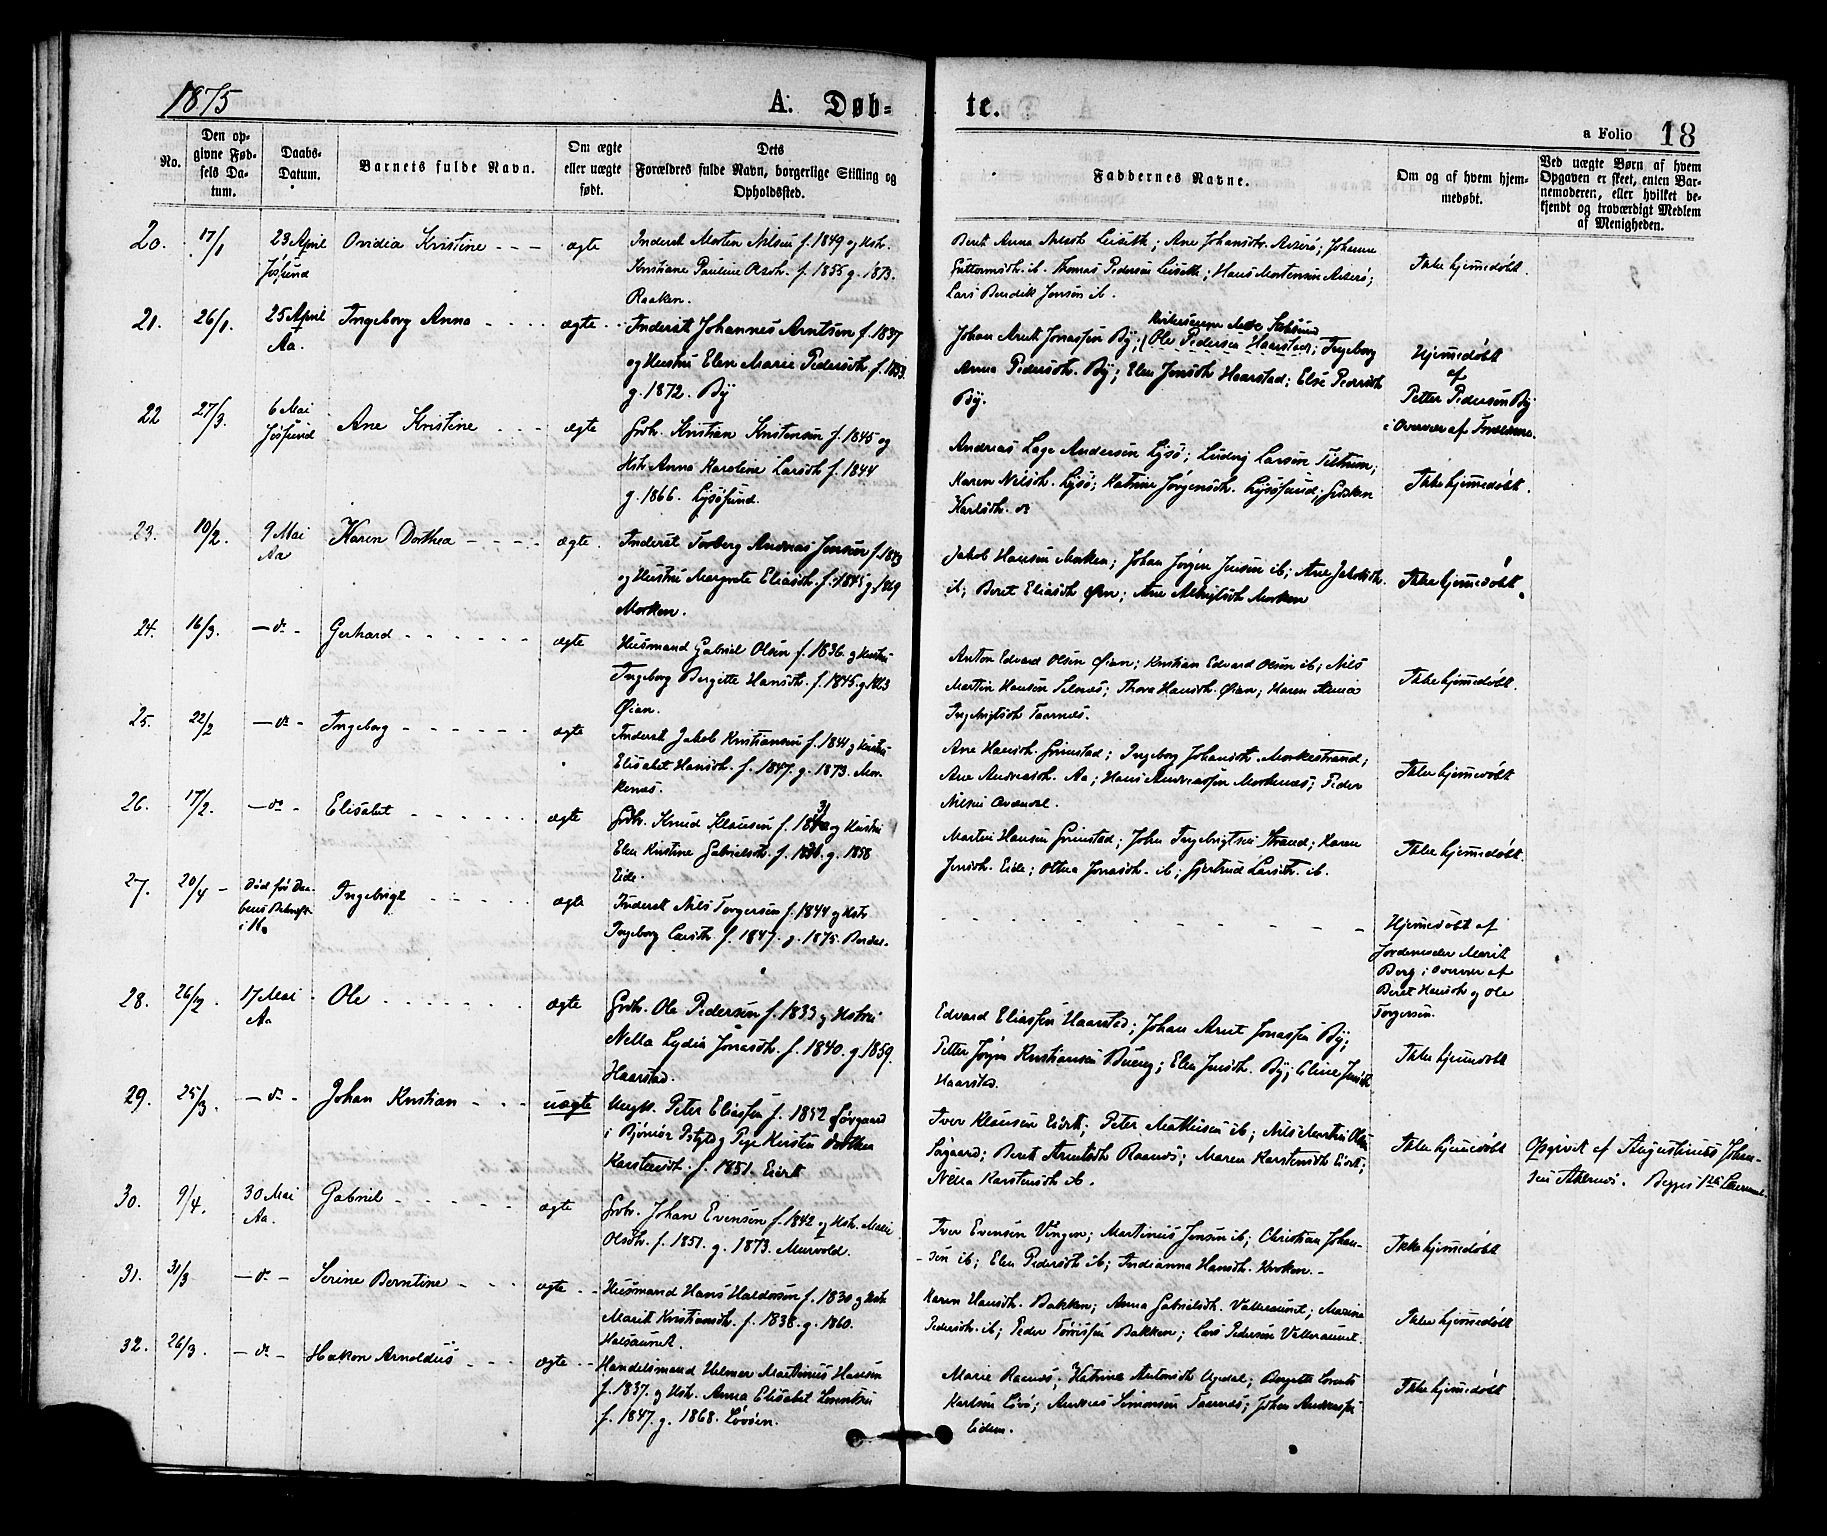 1875
A. Døb-
te.
a Folio 18
No.
Den op-
givne Fød-
sels Da-
tum.
Daabs-
Datum.
Barnets fulde Navn.
Om ægte
eller uægte
født.
Dets
Forældres fulde Navn, borgerlige Stilling og
Opholdssted.
Faddernes Navne.
Om og af hvem hjem-
medøbt.
Ved uægte Børn af hvem
Opgaven er skeet, enten Bar-
nemoderen, eller hvilket be-
kjendt og troværdigt Medlem
af Menigheden.
20. 17/1 23 April
Jøsfund
Ovidia Kristine - - - ægte
Inderst Morten Nilsen f. 1849 og Hstr.
Kristiane Pauline Olsdtr. f. 1855 g. 1873.
Raaken.
Beret Anna Nilsdtr Leiseth; Ane Johansdtr. ; Johanne
Guttormsdtr. ib. Thomas Pedersen Leiseth; Hans Mortensen ;
Lars Bendik Jensen ib.
Ikke hjemmedøbt.
21. 26/1. 25 April
Aa.
Ingeborg Anna - - - - ægte - -
Inderst Johannes Arntsen f. 1837
og Hustru Elen Marie Pedersdtr. f. 1833.
g. 1872. By
Johan Arnt Jonassen By; Ole Pedersen Haarstad; Ingeborg
Anna Pedersdtr. By; Elen Jensdtr Haarstad; Else Pedersdtr
By.
Hjemmedøbt
af
Petter Pedersen By
i Overvær af Forældrene.
22 27/3. 6 Mai
Jøsfund
Ane Kristine - - - ægte
Grdbr. Kristian Kristensen f. 1845 og
Hstr. Anna Karoline Larsdtr f. 1844
g. 1866. Lysøsund.
Andreas Lage Andersen Lysø; Ludvig Larsen Tiltrum;
Karen Nilsdtr. Lysø; Katrine Jørgensdtr. Lysøsund;
Karlsdtr. do
Ikke hjemmedøbt.
23. 10/2. 9 Mai
Aa
Karen Dorthea - - - - ægte.
Inderst Torberg Andreas Jensen f. 1843
og Hustru Margrete Eliasdtr. f. 1845 g. 1869
Morken.
Jakob Hansen Morken; Johan Jørgen Jensen ib; Ane Jakobsdtr.
ib; Beret Eliasdtr Øien; Ane Morken
Ikke hjemmedøbt.
24. 16/3. - do - Gerhard - - - - - - ægte
Husmand Gabriel Olsen f. 1836. og Hustru
Ingeborg Bergitte Hansdtr. f. 1845. g. 1863
Øian.
Anton Edvard Olsen Øian; Kristian Edvard Olsen ib; Nils
Martin Hansen Selnes; Thora Hansdtr. Øian; Karen Anna
Ingebrigtsdtr Taarnes.
Ikke hjemmedøbt.
25. 22/2 - do - Ingeborg - - - - - - ægte
Inderst Jakob Kristiansen f. 1841 og Hustru
Elisabet Hansdtr. f. 1847. g. 1873. Mor-
kenes.
Ane Hansdtr. Grimstad; Ingeborg Johansdtr. Morkestrand;
Ane Andreasdtr. Aa; Hans Andreassen Morkenes; Peder
Nilsen
Ikke hjemmedøbt
26. 17/2. - do - Elisabet - - - - - - ægte
Grdbr. Knud Klausen f. og Hustru
Elen Kristine Gabrielsdtr. f. 1836. g. 1858
Eide.
Martin Hansen Grimstad; Johan Ingebrigtsen Strand; Karen
Jensdtr. Eide; Ottea Jonasdtr. ib; Gjertrud Larsdtr. ib.
Ikke hjemmedøbt.
27. 20/4 - Død før Daa-
bens Bekræft-
i K.
Ingebrigt - - - - - ægte
Inderst Nils Torgersen f. 1844 og Hstr.
Ingeborg Larsdtr. f. 1847. g. 1875.
Hjemmedøbt af
Jordemoder Marit
Berg i Overvær af
Beret Hansdtr og Ole
Torgersen.
28. 26/2. 17 Mai
Aa
Ole - - - - - - - ægte
Grdbr. Ole Pedersen f. 1833 og Hustru
Nella Lydia Jonasdtr. f. 1840. g 1859.
Haarstad.
Edvard Eliassen Haarstad; Johan Arnt Jonassen By;
Petter Jørgen Kristiansen ; Elen Jensdtr. By; Eline Jensdtr
Haarstad.
Ikke hjemmedøbt
29. 25/3. - do - Johan Kristian - - - uægte
Ungk. Peter Eliassen f. 1852 Sørgaard
i Bjørnør Pstgld og Pige Kirsten Dorthea
Karstensdtr. f. 1851.
Iver Klausen ; Peter Mathisen ib; Nils Martin Olsen
Sørgaard; Beret Arntsdtr Raanes; Maren Karstensdtr ;
Nella Karstensdtr ib.
Ikke hjemmedøbt
Opgivet af Augustinus Johan-
sen . Begges 1ste Leiermaal.
30. 9/4. 30 Mai
Aa.
Gabriel - - - - - - ægte
Grdbr. Johan Evensen f. 1842 og Hstr. Marie
Olsdtr. f. 1851. g. 1873. Murvold.
Iver Evensen Vingen; Martinus Jensen ib; Christian Johan-
sen ib; Elen Pedersdtr ib; Indianna Hansdtr. Kroken. -
Ikke hjemmedøbt
31. 31/3 - do - Serine Berntine - - - ægte - -
Husmand Hans Haldosen f. 1830 og Hstr.
Marit Kristiansdtr. f. 1838. g. 1860.
Halsaunet.
Karen Hansdtr. Bakken; Anna Gabrielsdtr. Valleraunet; Maxine
Pedersdtr. ib; Peder Tørrissen Bakken; Lars Pedersen Valleraunet.
Ikke hjemmedøbt
32. 26/3. - do - Hakon Arnoldus - - - ægte - -
Handelsmand Helmer Martinus Hansen
f. 1837. og Hstr. Anna Elisabet Lorentsen
f. 1847 g. 1868. Løvøen.
Marie Raanes; Katrine Antonsdtr Opdal; Bergitte Lorents
Karlsen Løvø; Andreas Simonsen Taarnes; Johan Andreassen
Eidem.
Ikke hjemmedøbt